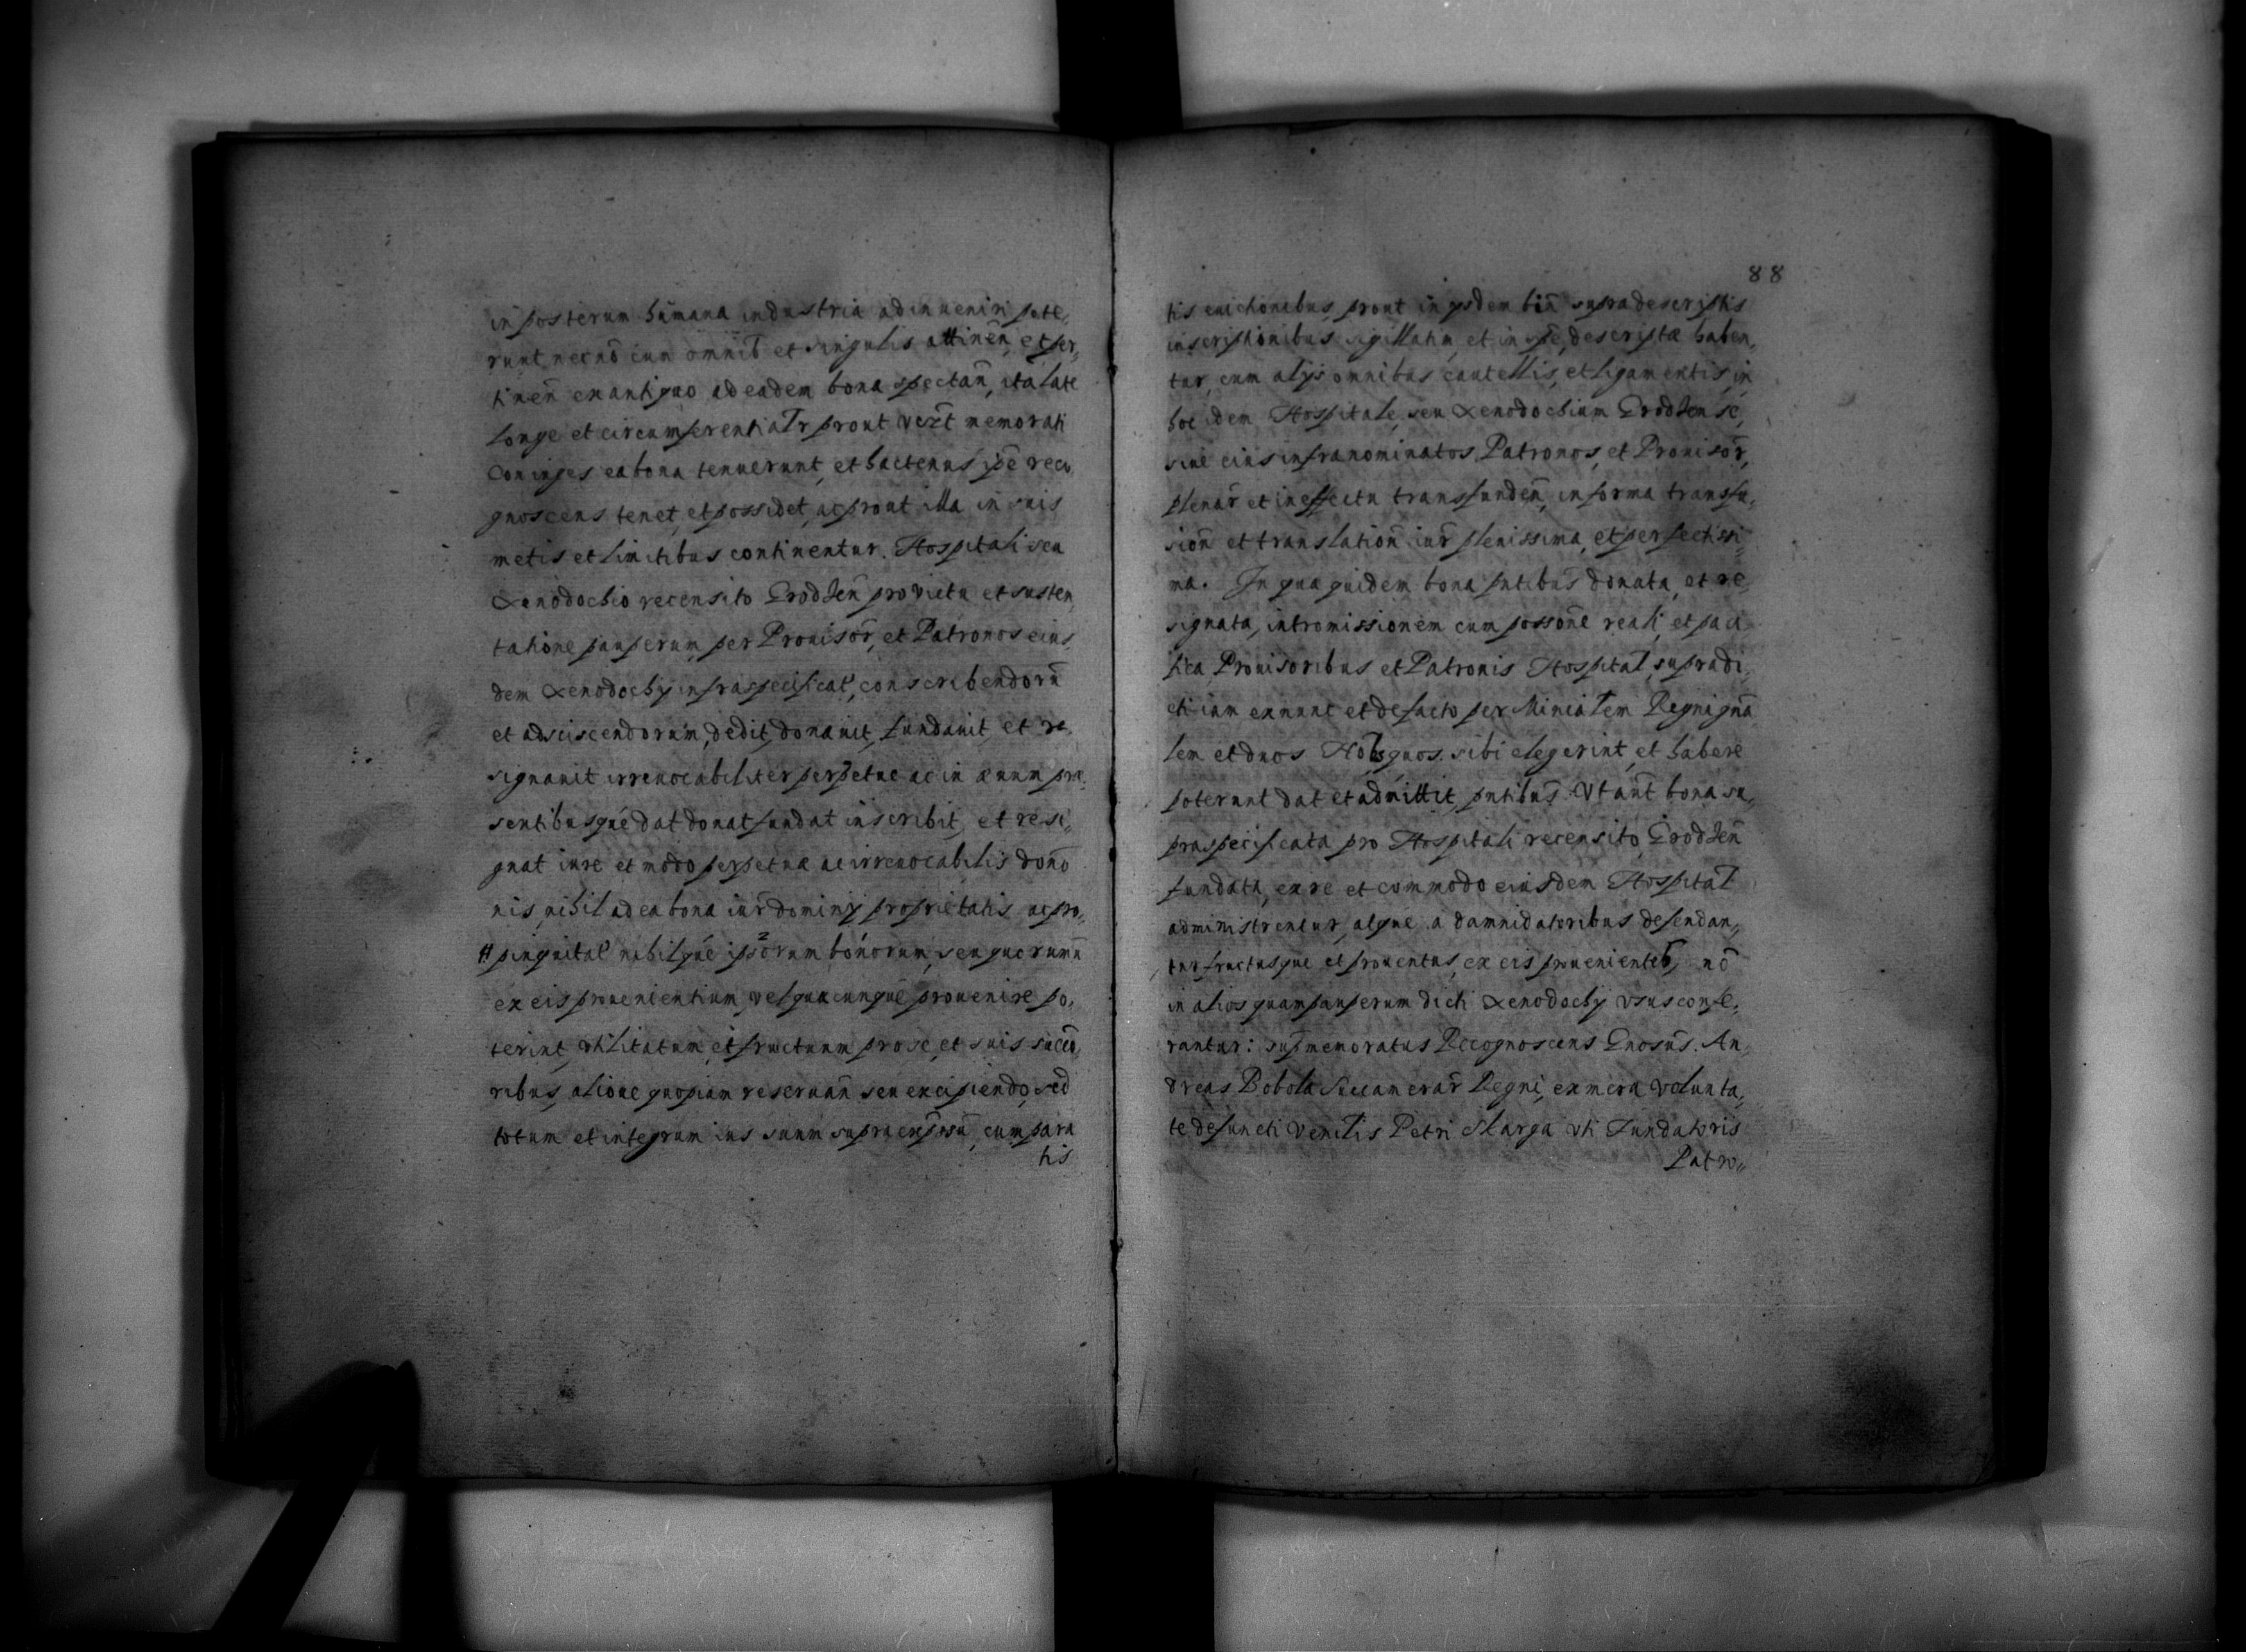 in posterum humana industria adinueniri pote,
runt, necnō cum omnib et singulis attinēn, et per,
tinēn ex antiquo ad eadem bona spectān, ita late
longe et circumferentialr prout memorati
Coniuges ea bona tenuerunt, et hactenus ipē reco,
gnoscens tenet, et possidet, ac prout illa in suis
metis et limitibus continentur. Hospitali seu
Xenodochio recensito Grodzēn pro victu et susten,
tatione pauperum, per Prouisōr, et Patronos eius,
dem Xenodochy infraspecificat, conscribendorū
et adsciscendorum, dedit, donauit, fundauit, et re,
signauit irreuocabiliter perpetue ac in æuum præ,
sentibusqué dat donat fundat inscribit, et resi,
gnat iure et modo perpetuæ ac irreuocabilis donō
nis, nihil ad ea bona iūr dominy proprietatis ac pro,
# pinquitat nihilqué ipsorum bonorum, seu quorumū
ex eis prouenientium, vel quæcunqué prouenire po,
terint, vtilitatum, et fructuum pro se, et suis succō,
ribus, alioue quopiam reseruān seu excipiendo, sed
totum et integrum ius suum supraexpōsū, cum para
tis
88
tis euictionibus, prout in ysdem biñ supradescriptis
inscriptionibus sigillatim, et in spē, descriptæ haben,
tur, cum alys omnibus cautellis, et ligamentis, in
hoc idem Hospitale, seu Xenodochium Grodzense,
siue eius infranominatos Patronos, et Prouisōr,
plenār et in effectu transfundēn, in forma transfu,
siōn et translatiōn iūr plenissima, et perfectissi,
ma. In qua quidem bona pntibūs donata, et re
signata, intromissionem cum possōne reali, et paci
fica, Prouisoribus et Patronis Hospital, supradi,
cti iam exnunc et de facto per Minialem Regni gñā
lem et duos Nobs quos sibi elegerint, et habere
poterunt dat et admittit, pntibūs. Vt aūt bona su,
praspecificata pro Hospitali recensito, Grodzēn
fundata, ex re et commodo eiusdem Hospital
administrentur, atqué a damnidatoribus defendan,
tur fructusque et prouentus, ex eis prouenientes, nō
in alios quam pauperum dicti Xenodochy vsus confe,
rantur: supmemoratus Recognoscens Gnosūs. An,
dreas Bobola Succamerār Regni, ex mera volunta,
te defuncti Petri Skarga vti Fundatoris
Patro,,